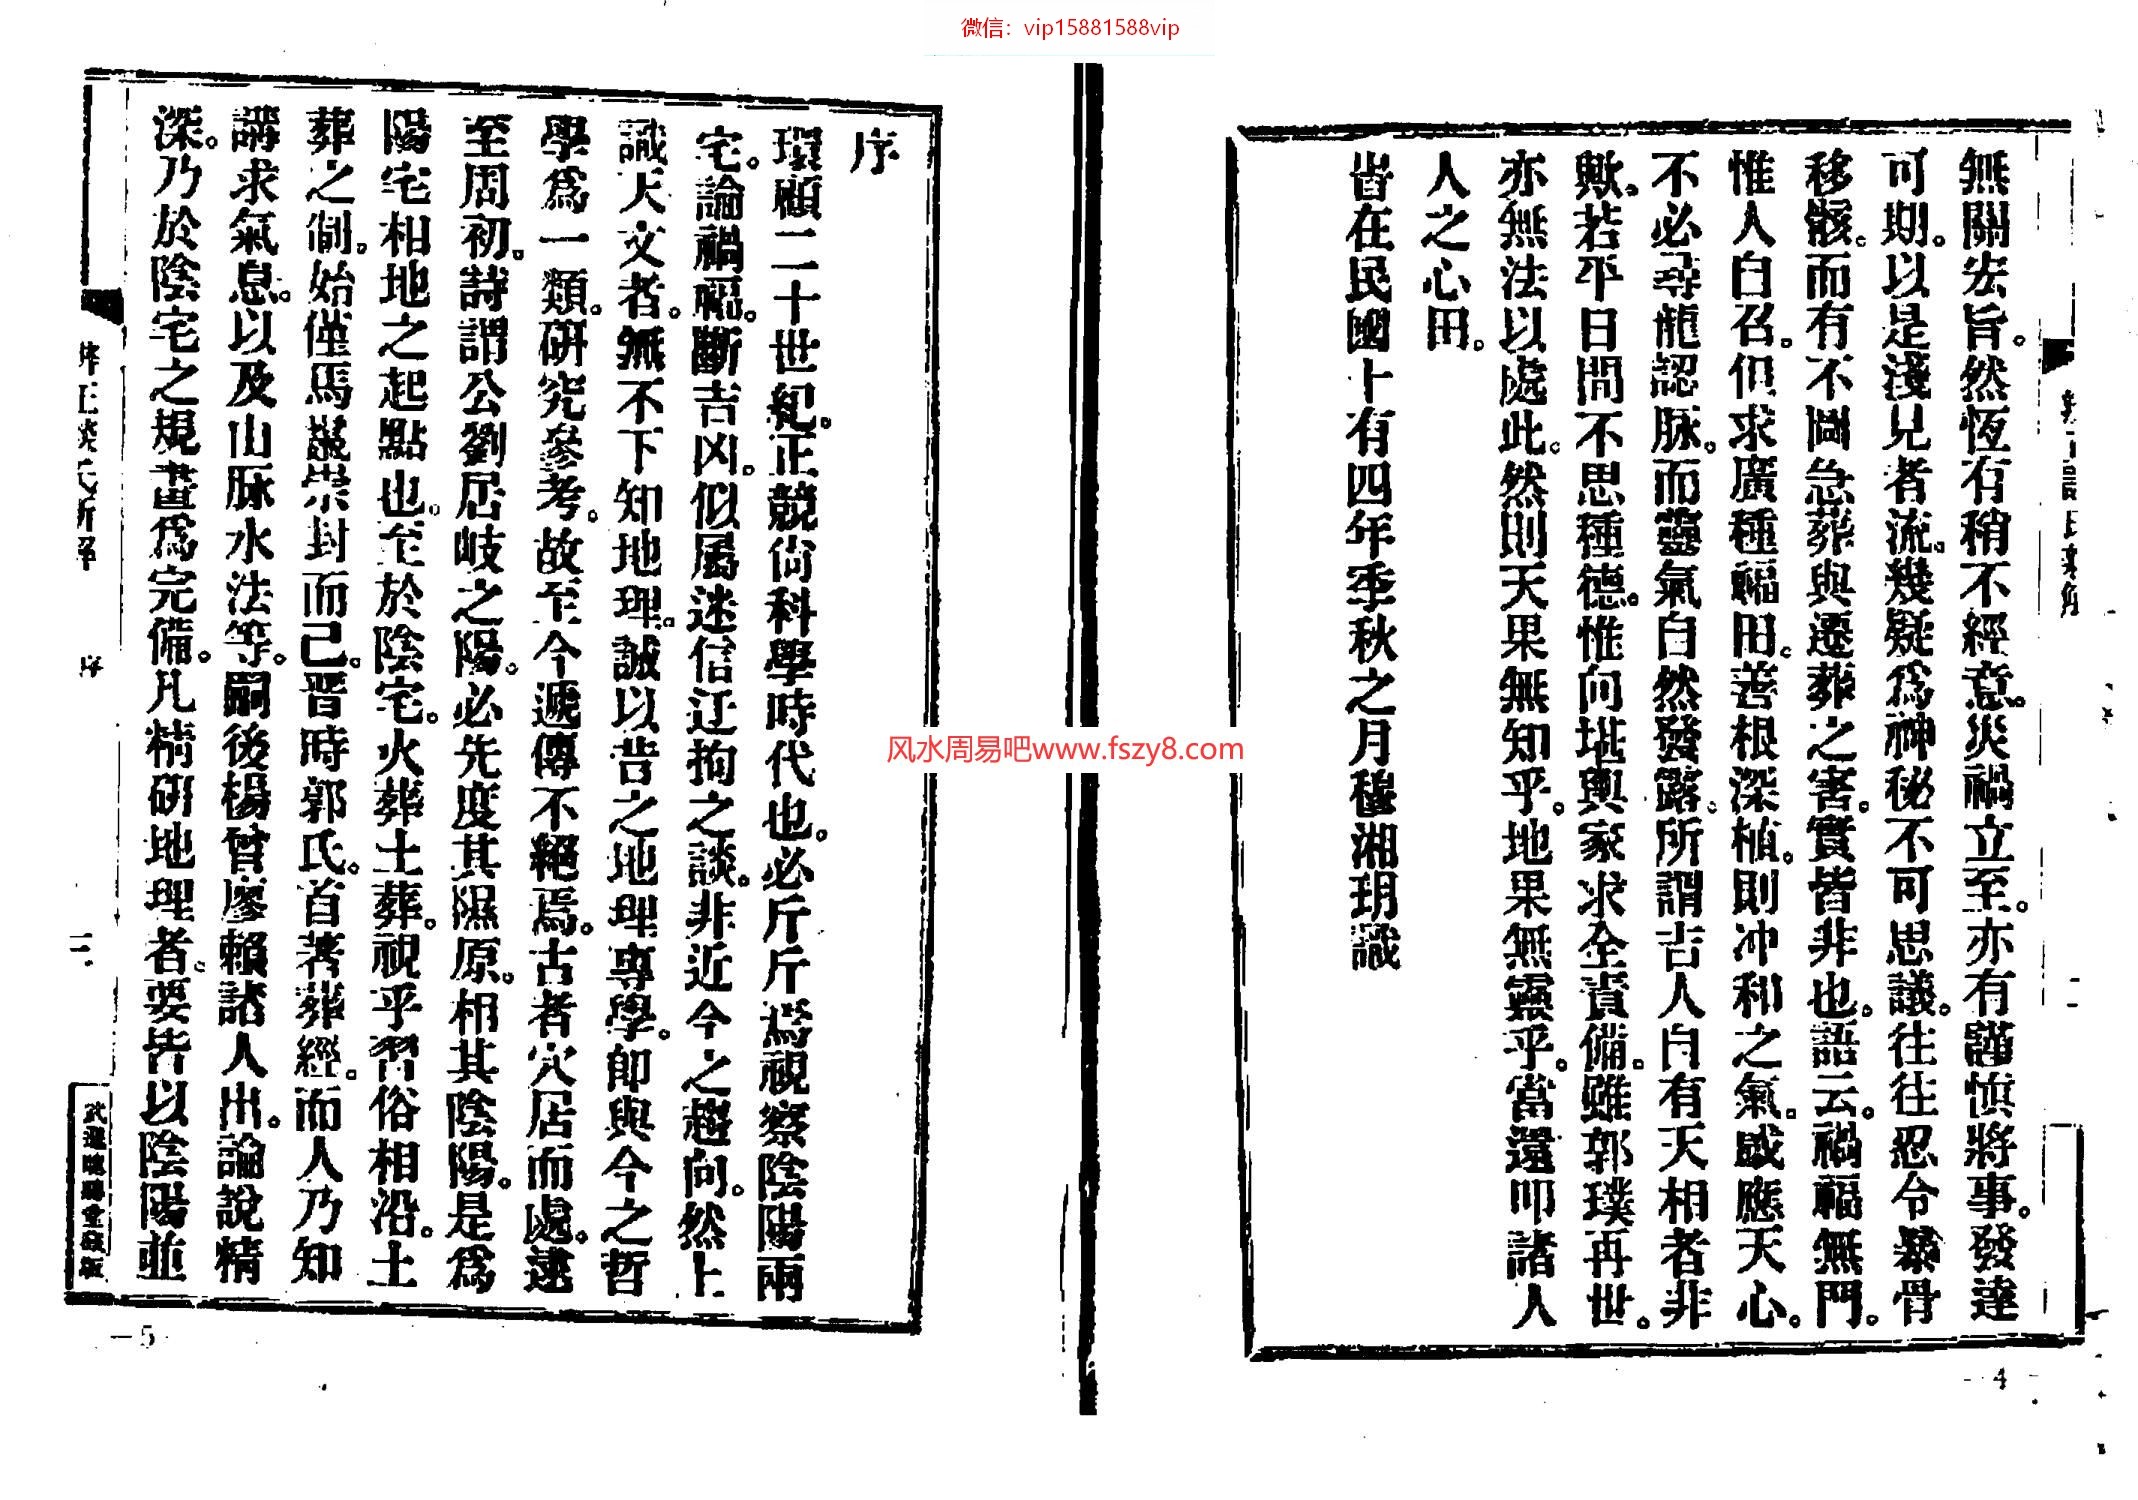 微信：vip15881588vip
無關宏旨。然恆有稍不經意。災禍立至。亦有謹慎將事。發達
可期。以是淺見者流。幾疑爲神秘不可思議。往往忍令暴骨
移骸。而有不圖急葬與遷葬之害。實皆非也。語云。禍福無門。
惟人自召。但求廣種福田。善根深植。則冲和之氣。感應天心。
不必尋龍認脉。而靈氣自然發露。所謂吉人自有天相者非
歟。若平日間不思種德。惟向堪輿家求全責備。雖郭璞再世。
亦無法以處此。然則天果無知乎。地果無靈乎。當還叩諸人
人之心田。
旹在民國十有四年季秋之月穆湘玥識
4
序
環顧二十世紀。正競尙科學時代也。必斤斤焉視察陰陽兩
宅。論禍福。斷吉凶。似屬迷信迂拘之談。非近今之趨向。然上
識天文者。無不下知地理。誠以昔之地理專學。卽與今之哲
學爲一類。研究參考。故至今遞傳不絕焉。古者穴居而處。逮
至周初。詩謂公劉居岐之陽。必先度其隰原。相其陰陽。是爲
陽宅相地之起點也。至於陰宅。火葬土葬。視乎習俗相沿。土
葬之制。始僅馬鬣崇封而已。晋時郭氏。首著葬經。而人乃知
講求氣息。以及山脉水法等。嗣後楊曾廖賴諸人出。論說精
深。乃於陰宅之規畫爲完備。凡精研地理者。要皆以陰陽並
序
三
5
风水周易吧www.fszy8.com